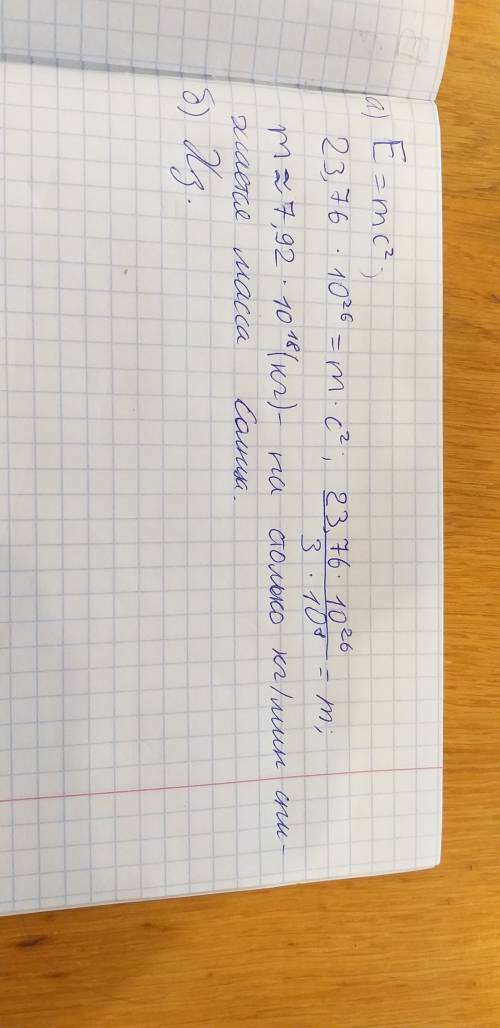 а) E = mc²;
23,76 · 10²⁶ = m · c²; 23,76 · 10²⁶ / 3 · 10⁸ = m;
m ≈ 7,92 · 10¹⁸ (кг) - на столько кг/мин сни-
жается масса Солнца.
б) Из.